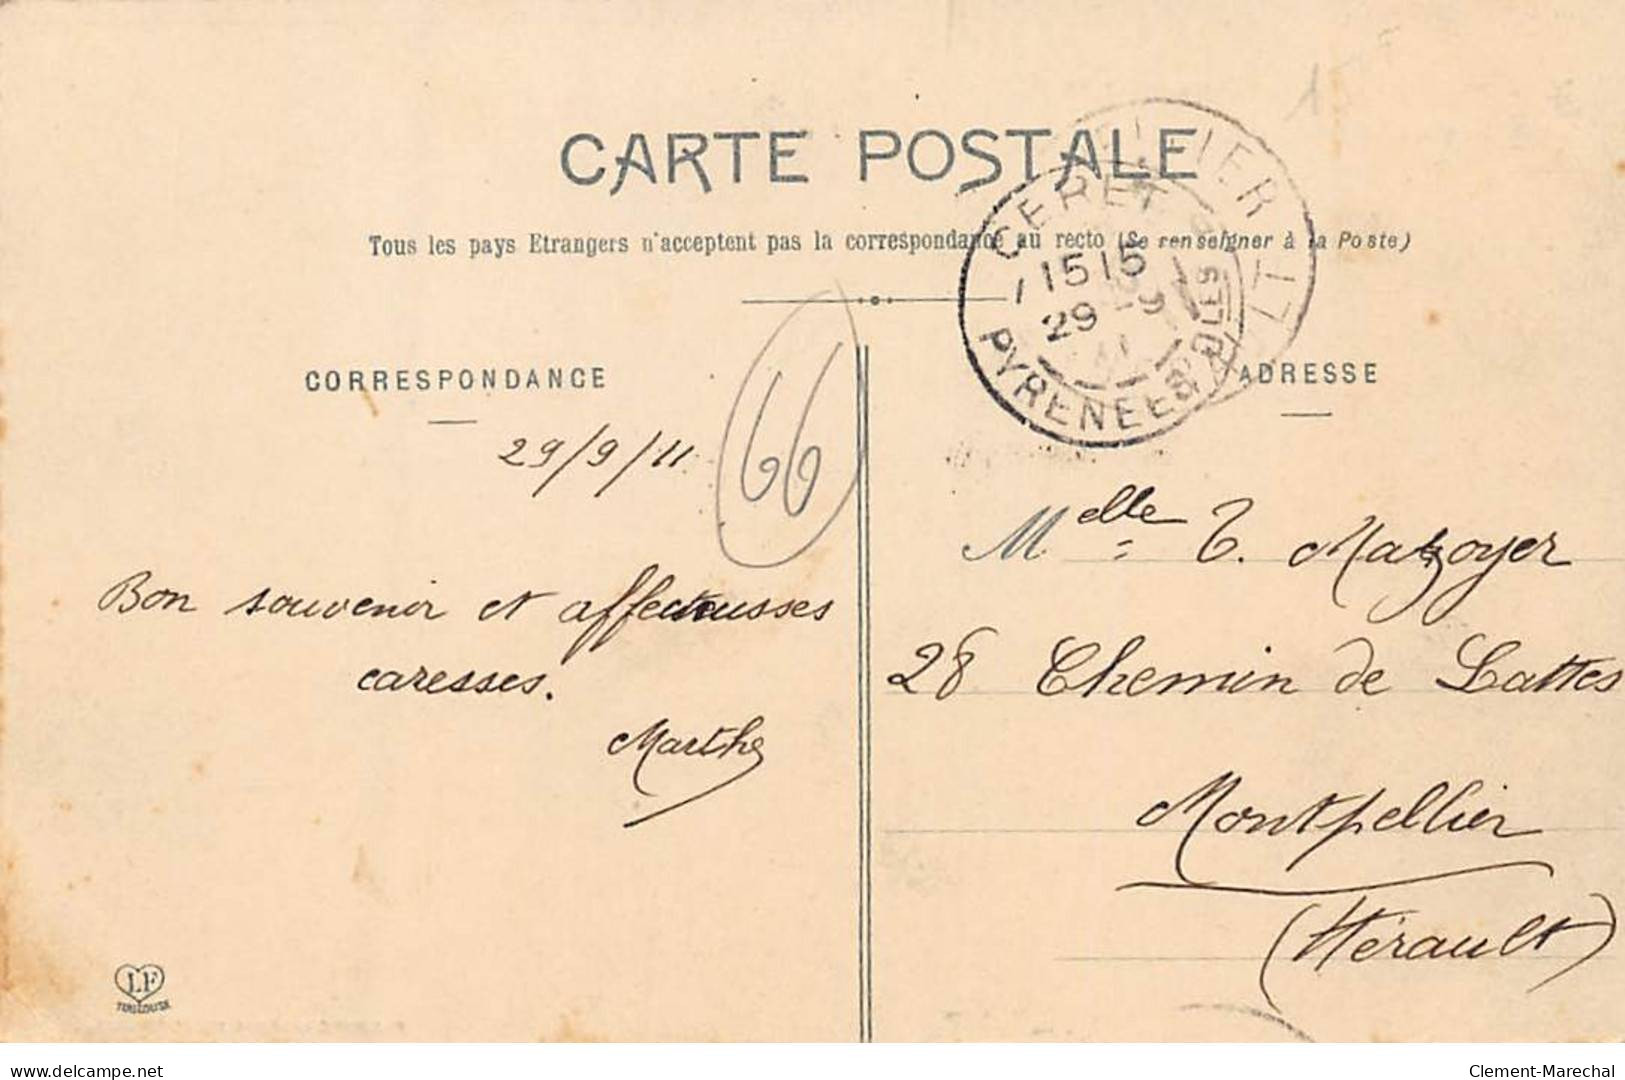 CARTE POSTALE
Tous les pays Etrangers n'acceptent pas la correspondance au recto (Se renseigner à la Poste)
CERET
1515
29 -9
11
PYRENEES
CORRESPONDANCE
29/9/11.
66
Bon souvenir et affectueusses
caresses.
Marthe
LF
TOULOUSE
ADRESSE
Melle T. Mazoyer
28 Chemin de Lattes
Montpellier
(Hérault)
15
€
delcampe.net
Clement-Marechal